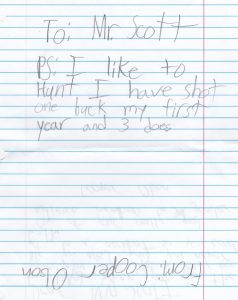 To: Mr. Scott
PS: I like to
Hunt I have shot
one buck my first
year and 3 does
From: Cooper Olson